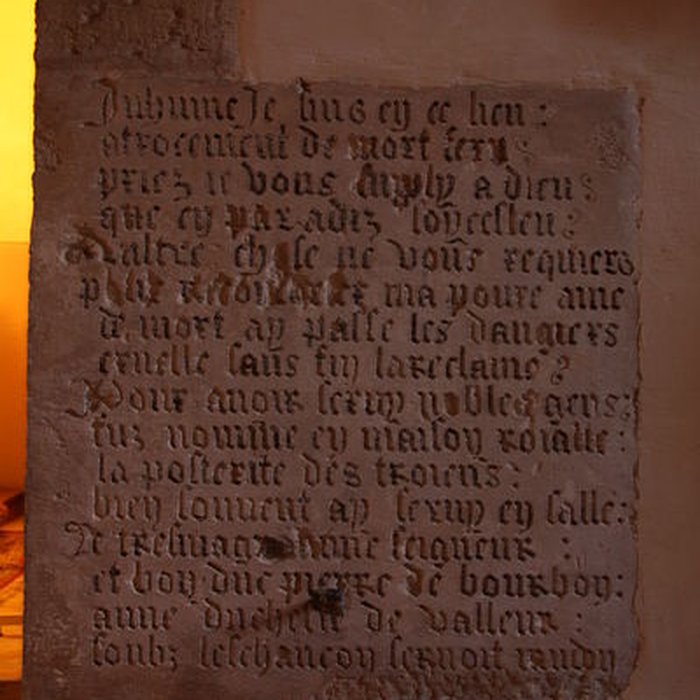 Inhume Je suis ey ce lieu :
atrocement de mort feru :
priez ie vous supply a dieu :
que ey paradiz soyeesleu :
Daltre chose ne vous requiers
pour ma poure ame
de mort ay passe les dangiers
eruelle sans fin la reclame
Pour auoir seruy nobles gens :
fuz nomme ey maison roialle :
la posterite des troiens :
biey souuent ay seruy ey salle :
De tresmagnanime seigneur :
et boy duc pierre de bourboy :
anne duchesse de valleur :
soubz leschancoy seruoit